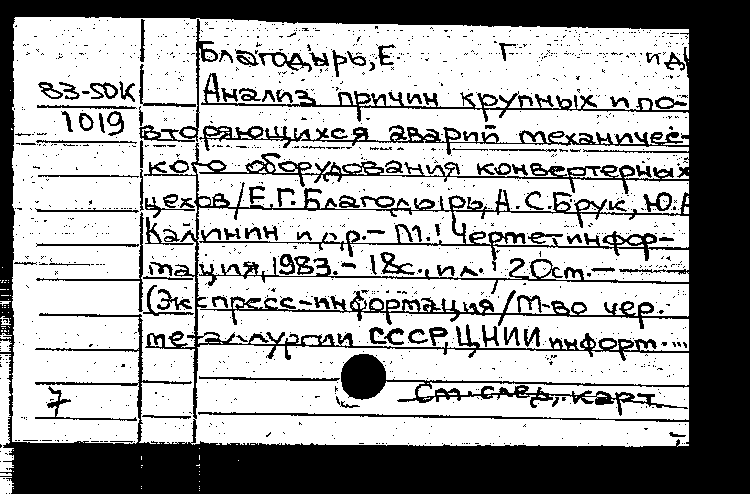 Благодырь, Е Г и д
83-5DK
Анализ причин крупных и по-
1019
вторяющихся аварий механичес-
кого оборудования конвертерных
цехов/Е.Г.Благодырь, А.С.Брук, Ю.
Калинин и др. – М.: Черметинфор-
мация, 1983. – 18с., ил.; 20см. —
(Экспресс-информация/М-во чер.
металлургии СССР, ЦНИИ информ...
7
См. след. карт.